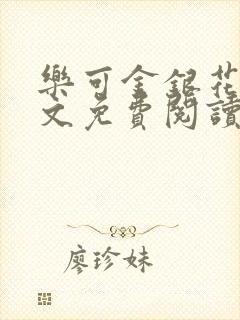 樂可金銀花
文免費閱讀
廖珍妹